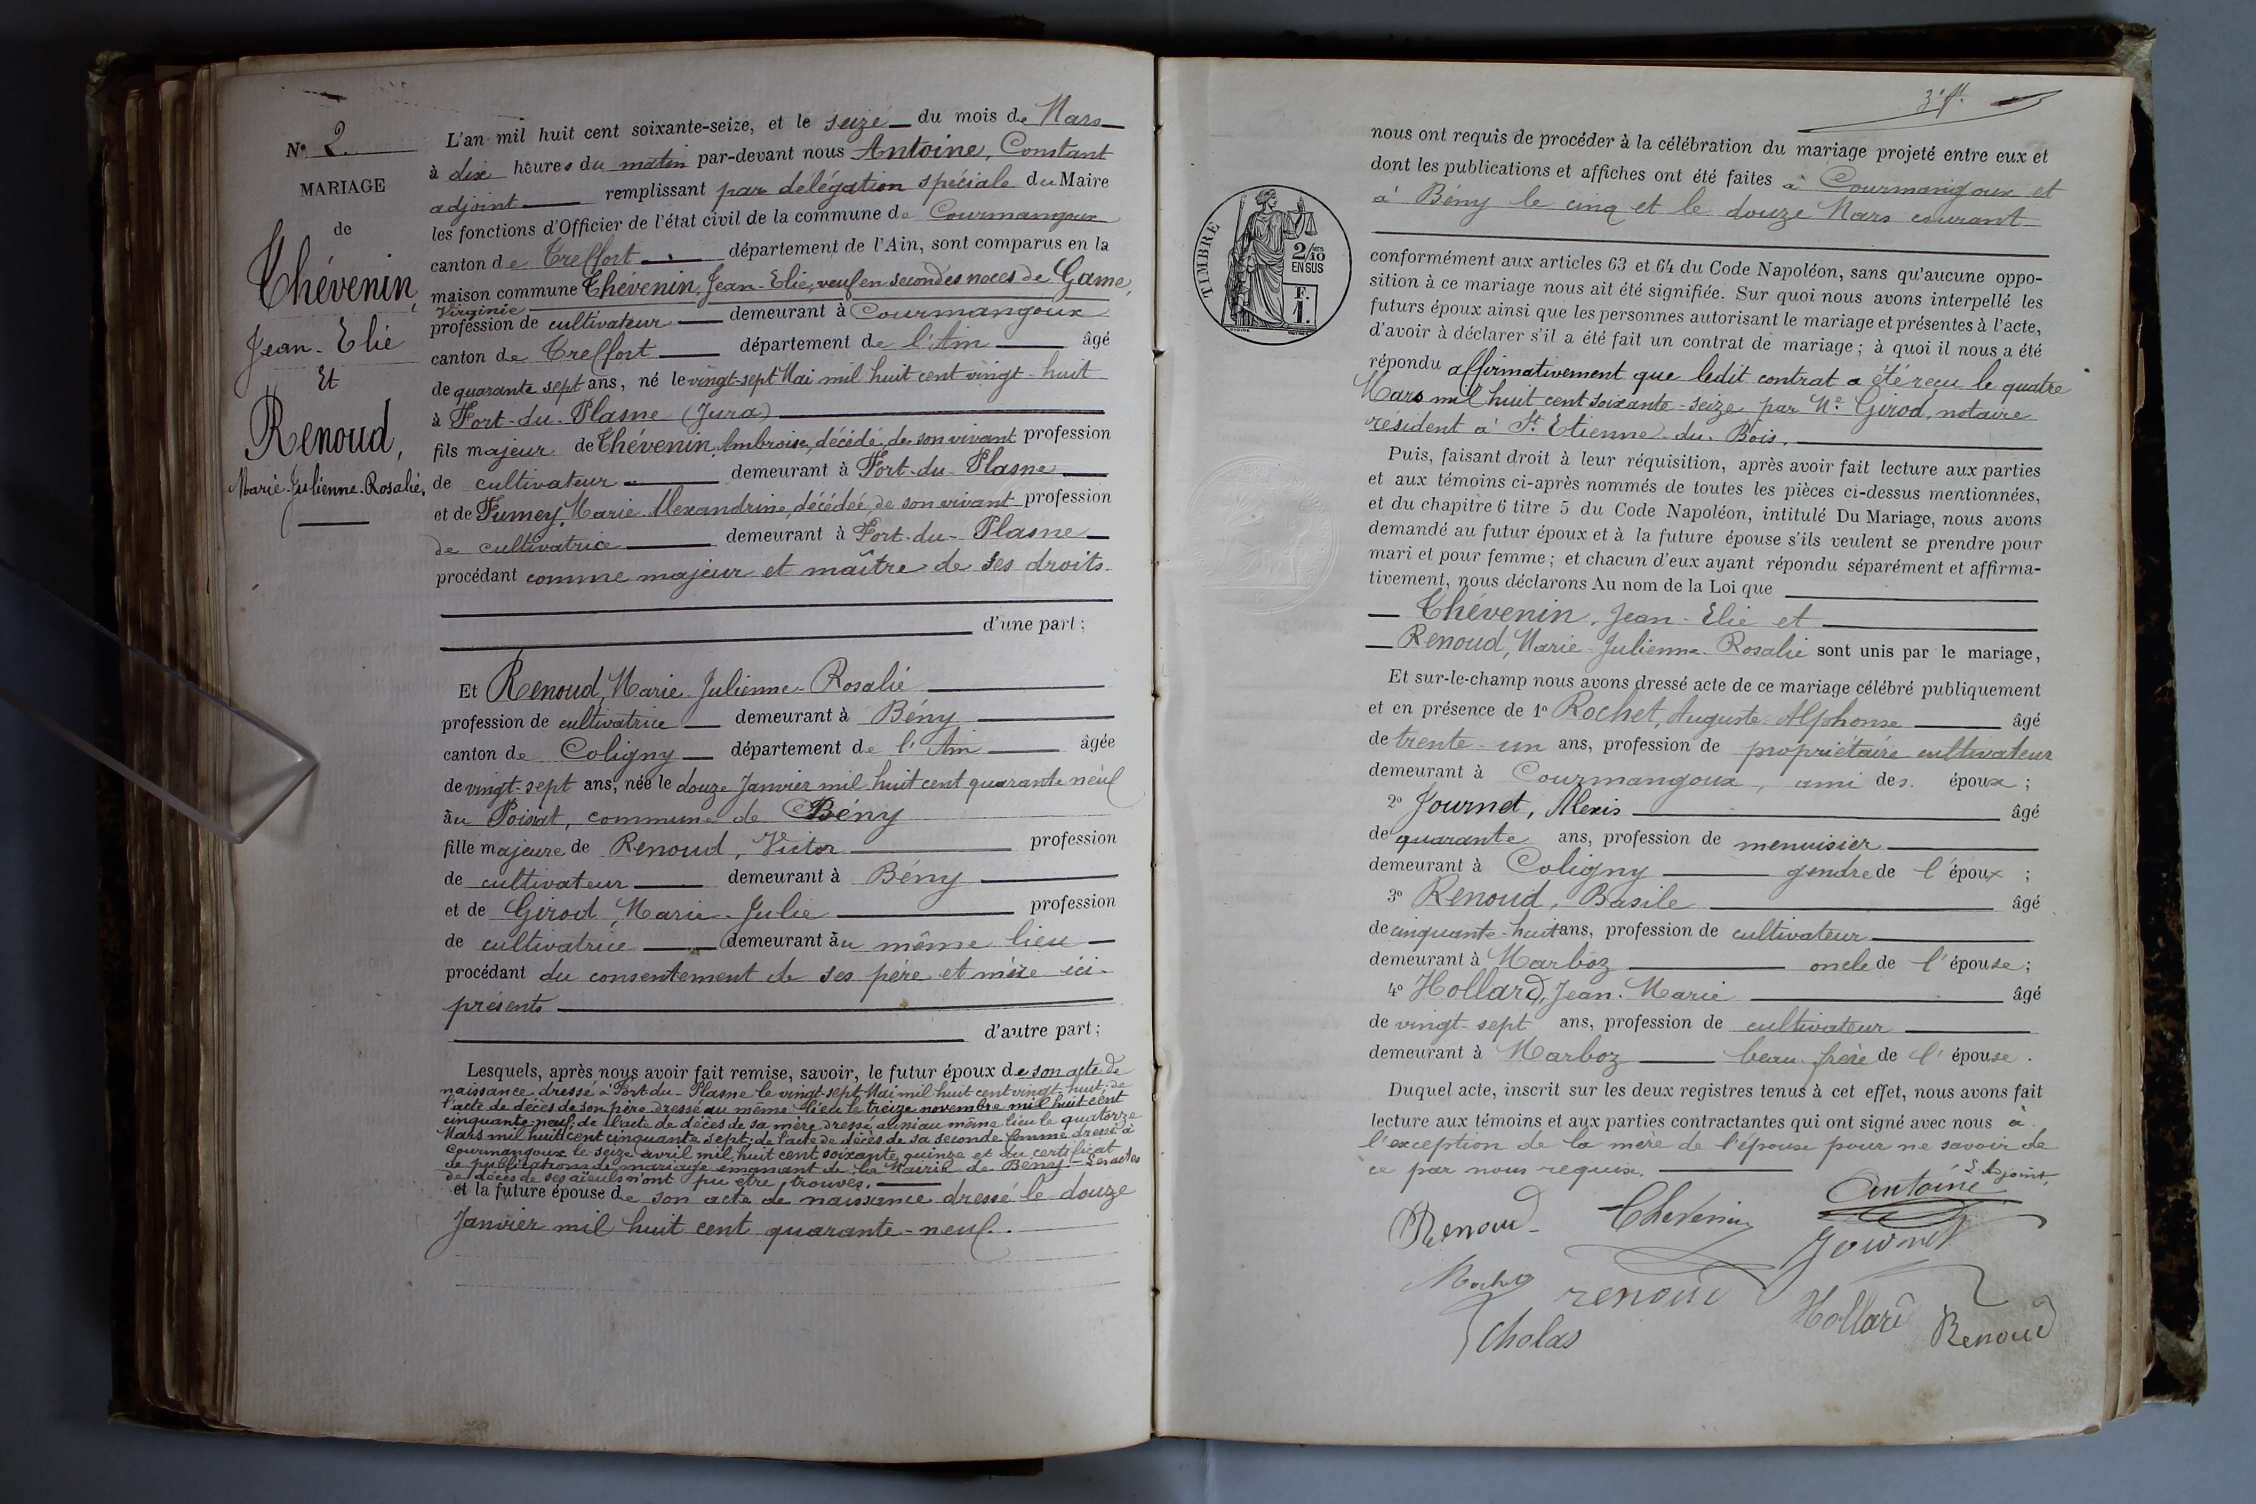 Nº 2.
MARIAGE
de
Thévenin,
Jean-Elie
Et
Renoud,
Marie-Julienne-Rosalie,
L'an mil huit cent soixante-seize, et le seize du mois de Mars
à dix heures du matin par-devant nous Antoine, Constant
adjoint remplissant par delégation spéciale du Maire
les fonctions d'Officier de l'état civil de la commune de Courmangoux
canton de Treffort département de l'Ain, sont comparus en la
maison commune Thévenin, Jean-Elie, veuf en secondes noces de Game,
Virginie
profession de cultivateur demeurant à Courmangoux
canton de Treffort département de l'Ain âgé
de quarante sept ans, né le vingt-sept Mai mil huit cent vingt-huit
à Fort-du-Plasne (Jura)
fils majeur de Thévenin, Ambroise, décédé, de son vivant profession
de cultivateur demeurant à Fort-du-Plasne
et de Fumey, Marie Alexandrine, décédée, de son vivant profession
de cultivatrice demeurant à Fort-du-Plasne
procédant comme majeur et maître de ses droits.
d'une part;
Et Renoud, Marie-Julienne-Rosalie
profession de cultivatrice demeurant à Bény
canton de Coligny département de l'Ain âgée
de vingt-sept ans, née le douze Janvier mil huit cent quarante neuf
au Poisat, commune de Bény
fille majeure de Renoud, Victor profession
de cultivateur demeurant à Bény
et de Girod, Marie-Julie profession
de cultivatrice demeurant au même lieu
procédant du consentement de ses père et mère ici-
présents
d'autre part;
Lesquels, après nous avoir fait remise, savoir, le futur époux de son acte de
naissance dressé à Fort-du-Plasne le vingt-sept Mai mil huit cent vingt-huit; de
l'acte de décès de son père dressé au même lieu le treize novembre mil huit cent
cinquante-neuf; de l'acte de décès de sa mère dressé aussi au même lieu le quatorze
Mars mil huit cent cinquante sept; de l'acte de décès de sa seconde femme dressé à
Courmangoux le seize avril mil huit cent soixante quinze et du certificat
de publications de mariage émanant de la Mairie de Bény - Les actes
de décès de ses aïeuls n'ont pu être trouvés.
et la future épouse de son acte de naissance dressé le douze
Janvier mil huit cent quarante-neuf.
3e ft.
nous ont requis de procéder à la célébration du mariage projeté entre eux et
dont les publications et affiches ont été faites à Courmangoux et
à Bény le cinq et le douze Mars courant
TIMBRE
2/10
EN SUS
F.
1.
conformément aux articles 63 et 64 du Code Napoléon, sans qu'aucune oppo-
sition à ce mariage nous ait été signifiée. Sur quoi nous avons interpellé les
futurs époux ainsi que les personnes autorisant le mariage et présentes à l'acte,
d'avoir à déclarer s'il a été fait un contrat de mariage; à quoi il nous a été
répondu affirmativement que ledit contrat a été reçu le quatre
Mars mil huit cent soixante-seize par Me Girod, notaire
résident à St Etienne-du-Bois.
Puis, faisant droit à leur réquisition, après avoir fait lecture aux parties
et aux témoins ci-après nommés de toutes les pièces ci-dessus mentionnées,
et du chapitre 6 titre 5 du Code Napoléon, intitulé Du Mariage, nous avons
demandé au futur époux et à la future épouse s'ils veulent se prendre pour
mari et pour femme; et chacun d'eux ayant répondu séparément et affirma-
tivement, nous déclarons Au nom de la Loi que
Thévenin, Jean-Elie et
Renoud, Marie-Julienne-Rosalie sont unis par le mariage,
Et sur-le-champ nous avons dressé acte de ce mariage célébré publiquement
et en présence de 1º Rochet, Auguste-Alphonse âgé
de trente-un ans, profession de propriétaire cultivateur
demeurant à Courmangoux, ami des époux;
2º Journet, Alexis âgé
de quarante ans, profession de menuisier
demeurant à Coligny gendre de l'époux;
3º Renoud, Basile âgé
de cinquante-huit ans, profession de cultivateur
demeurant à Marboz oncle de l'épouse;
4º Hollard, Jean-Marie âgé
de vingt-sept ans, profession de cultivateur
demeurant à Marboz beau-frère de l'épouse.
Duquel acte, inscrit sur les deux registres tenus à cet effet, nous avons fait
lecture aux témoins et aux parties contractantes qui ont signé avec nous à
l'exception de la mère de l'épouse pour ne savoir de
ce par nous requise.
L'Adjoint,
Renoud Thévenin Antoine
Journet
Rochet renoud Hollard Renoud
Cholas